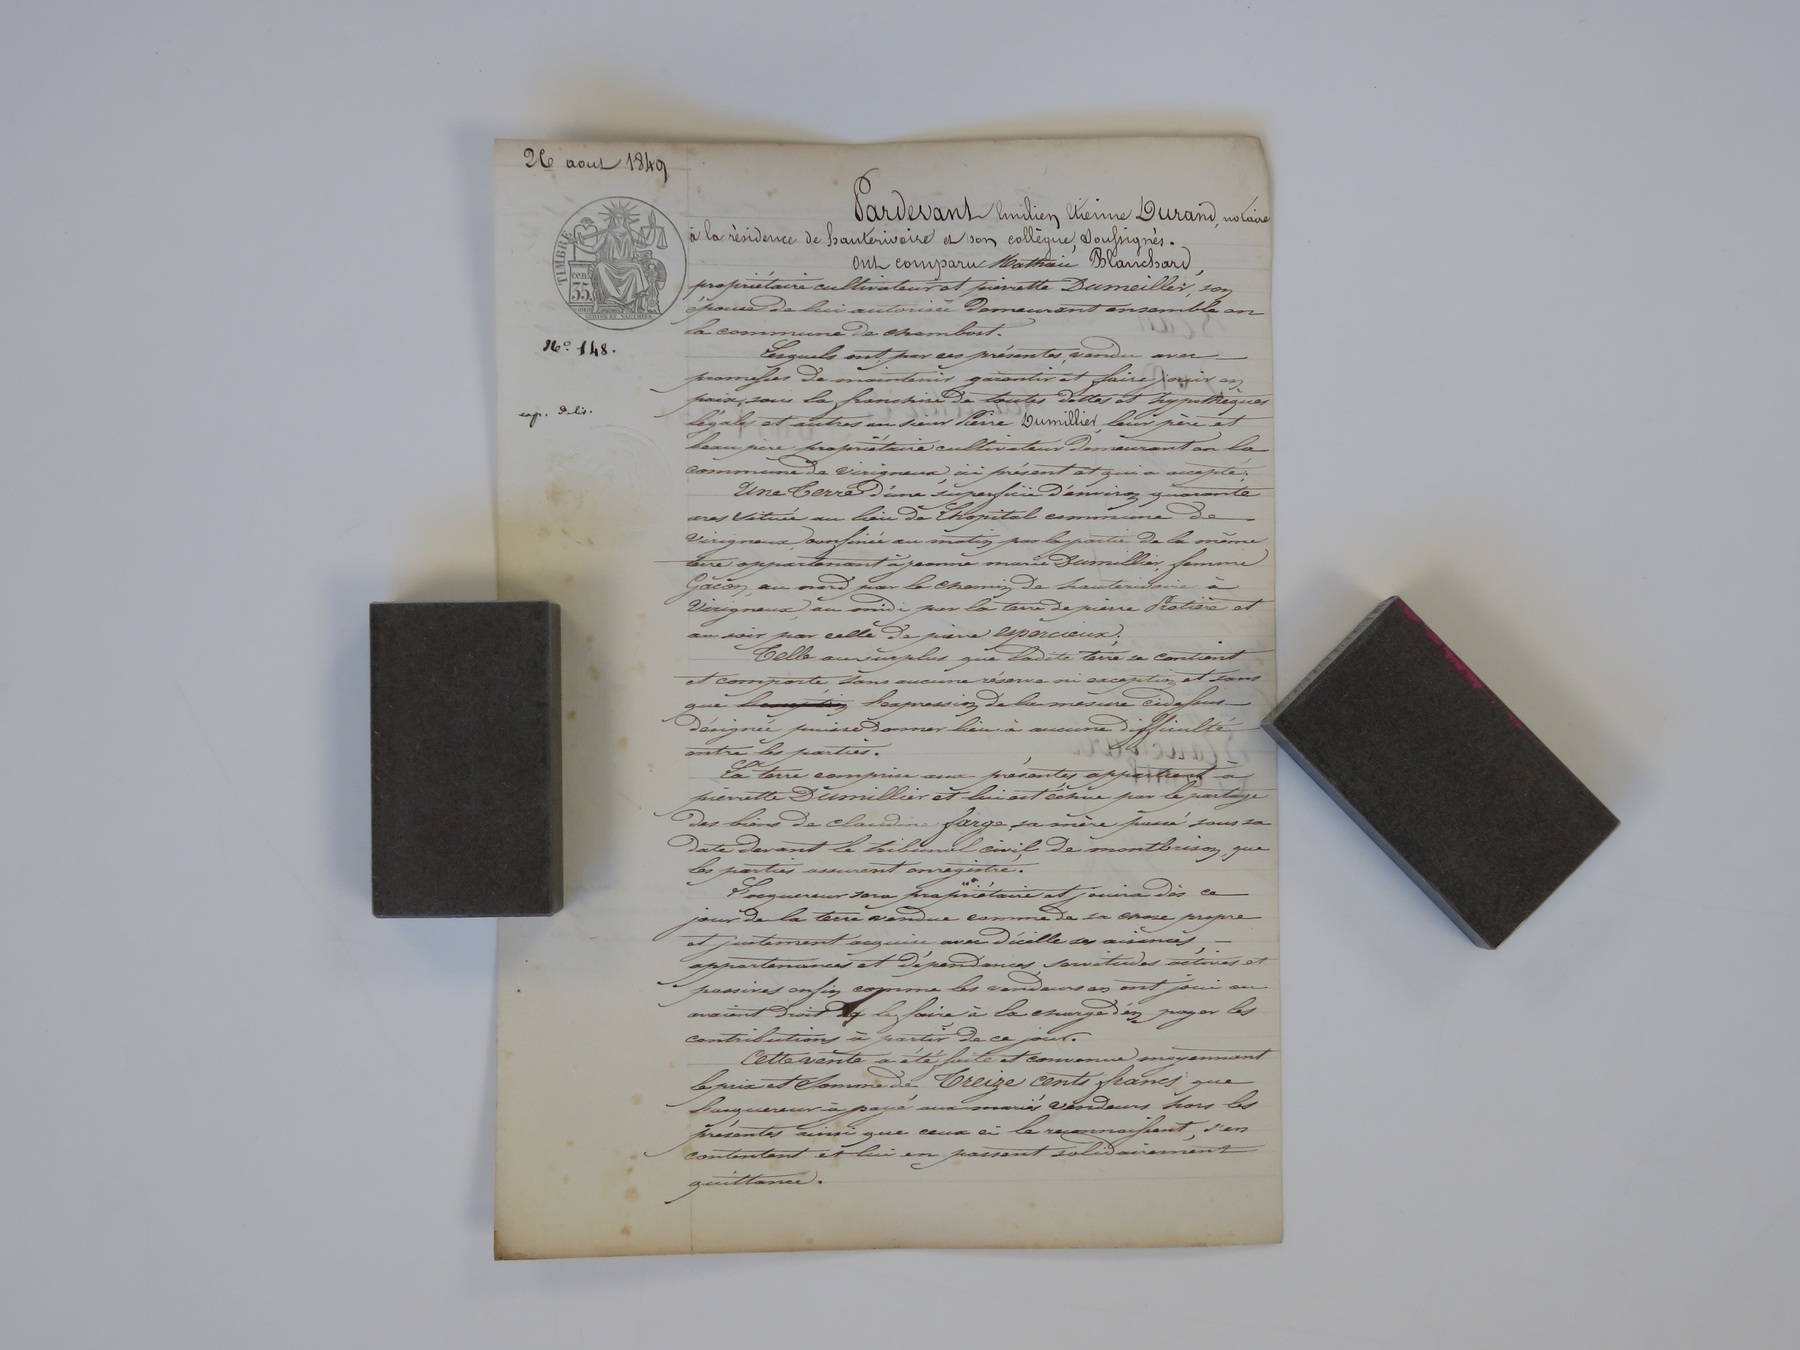 26 aout 1849
TIMBRE
cen.
35.
N.º 148.
exp. delis.
Pardevant Emilien Etienne Durand, notaire
à la résidence de hauterivoire et son collègue, soussignés.
Ont comparu Mathieu Blanchard,
propriétaire cultivateur et pierrette Dumeillier, son
épouse de lui autorisée Demeurant ensemble en
la commune de chambost.
Lesquels ont par ces présentes, vendu avec
promesses de maintenir garantir et faire jouir en
paix, sous la franchise de toutes dettes et hypothèques
légales et autres au sieur Pierre Dumillier, leur père et
beau père propriétaire cultivateur demeurant en la
commune de virigneux, ici présent et qui a accepté;
Une Terre d'une superficie d'environ quarante
ares située au lieu de l'hopital commune de
Virigneux, confinée au matin par la partie de la même
terre appartenant à jeanne marie Dumillier, femme
Gacon, au nord par le chemin de hauterivoire à
Virigneux, au midi par la terre de pierre Protière et
au soir par celle de pierre espercieux;
Telle au surplus que ladite terre se contient
et comporte sans aucune réserve ni exception et sans
que l'expression de la mesure cidessus
désignée puisse donner lieu à aucune difficulté
entre les parties.
La terre comprise aux présentes appartient à
pierrette Dumillier et lui est échue par le partage
des biens de claudine farge sa mère passé sous sa
date devant le tribunal civil de montbrison, que
les parties assurent enregistré.
L'acquereur sera propriétaire et jouira dès ce
jour de la terre vendue comme de sa chose propre
et justement acquise avec d'icelle ses aisances,
appartenances et dépendances, servitudes actives et
passives enfin comme les vendeurs en ont joui ou
avaient droit de le faire à la charge d'en payer les
contributions à partir de ce jour.
Cette vente a été faite et convenue moyennant
le prix et somme de Treize cents francs que
l'acquereur a payé aux mariés vendeurs hors les
présentes ainsi que ceux ci le reconnaissent, s'en
contentent et lui en passent solidairement
quittance.